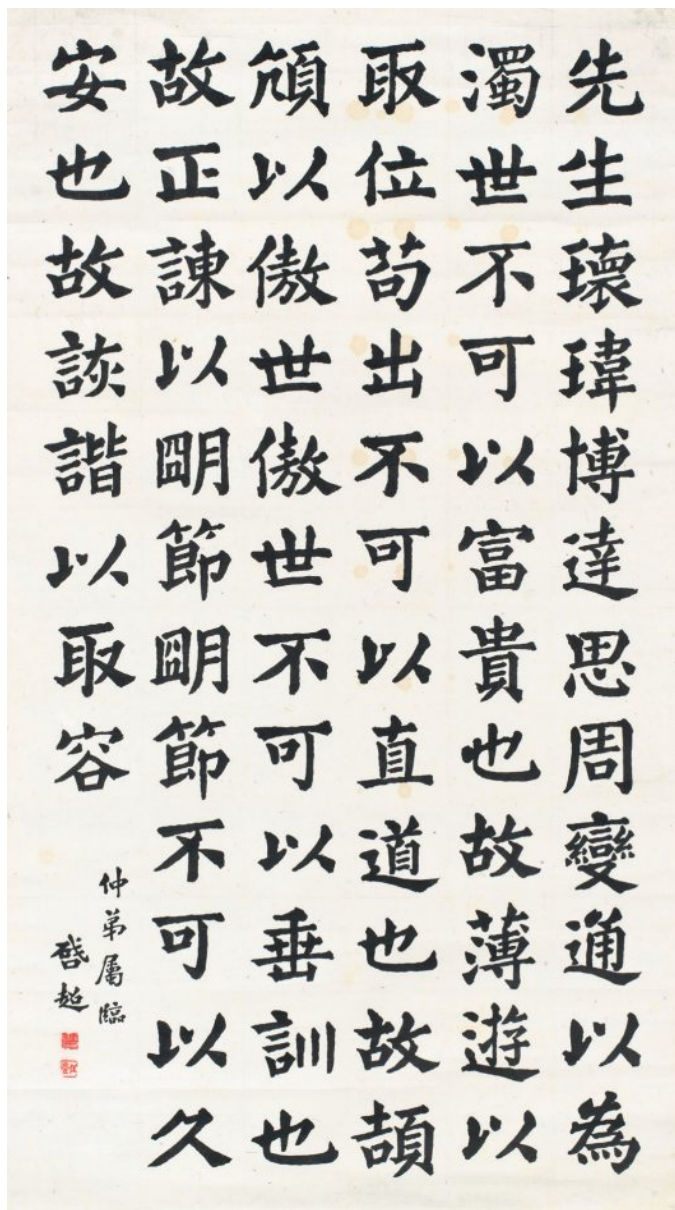 先生瓌瑋博達思周變通以為
濁世不可以富貴也故薄遊以
取位苟出不可以直道也故頡
頏以傲世傲世不可以垂訓也
故正諫以朙節朙節不可以久
安也故詼諧以取容
仲弟屬臨
啓超